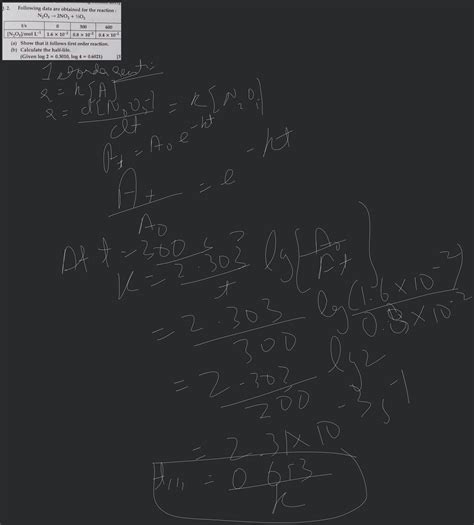 2. Following data are obtained for the reaction :
N₂O₅ → 2NO₂ + ½O₂
t/s 0 300 600
[N₂O₅]/mol L⁻¹ 1.6 × 10⁻² 0.8 × 10⁻² 0.4 × 10⁻²
(a) Show that it follows first order reaction.
(b) Calculate the half-life.
(Given log 2 = 0.3010, log 4 = 0.6021)
r = k[A]
r = d[N₂O₅]/dt = k[N₂O₅]
A_t = A₀ e^-kt
A_t/A₀ = e^-kt
At t = 300 s
k = 2.303/t lg[A₀/A_t]
= 2.303/300 lg(1.6 × 10⁻²)/0.8 × 10⁻²
= 2.303/300 lg2
= 2.31 × 10^-3 s^-1
= 0.693/k